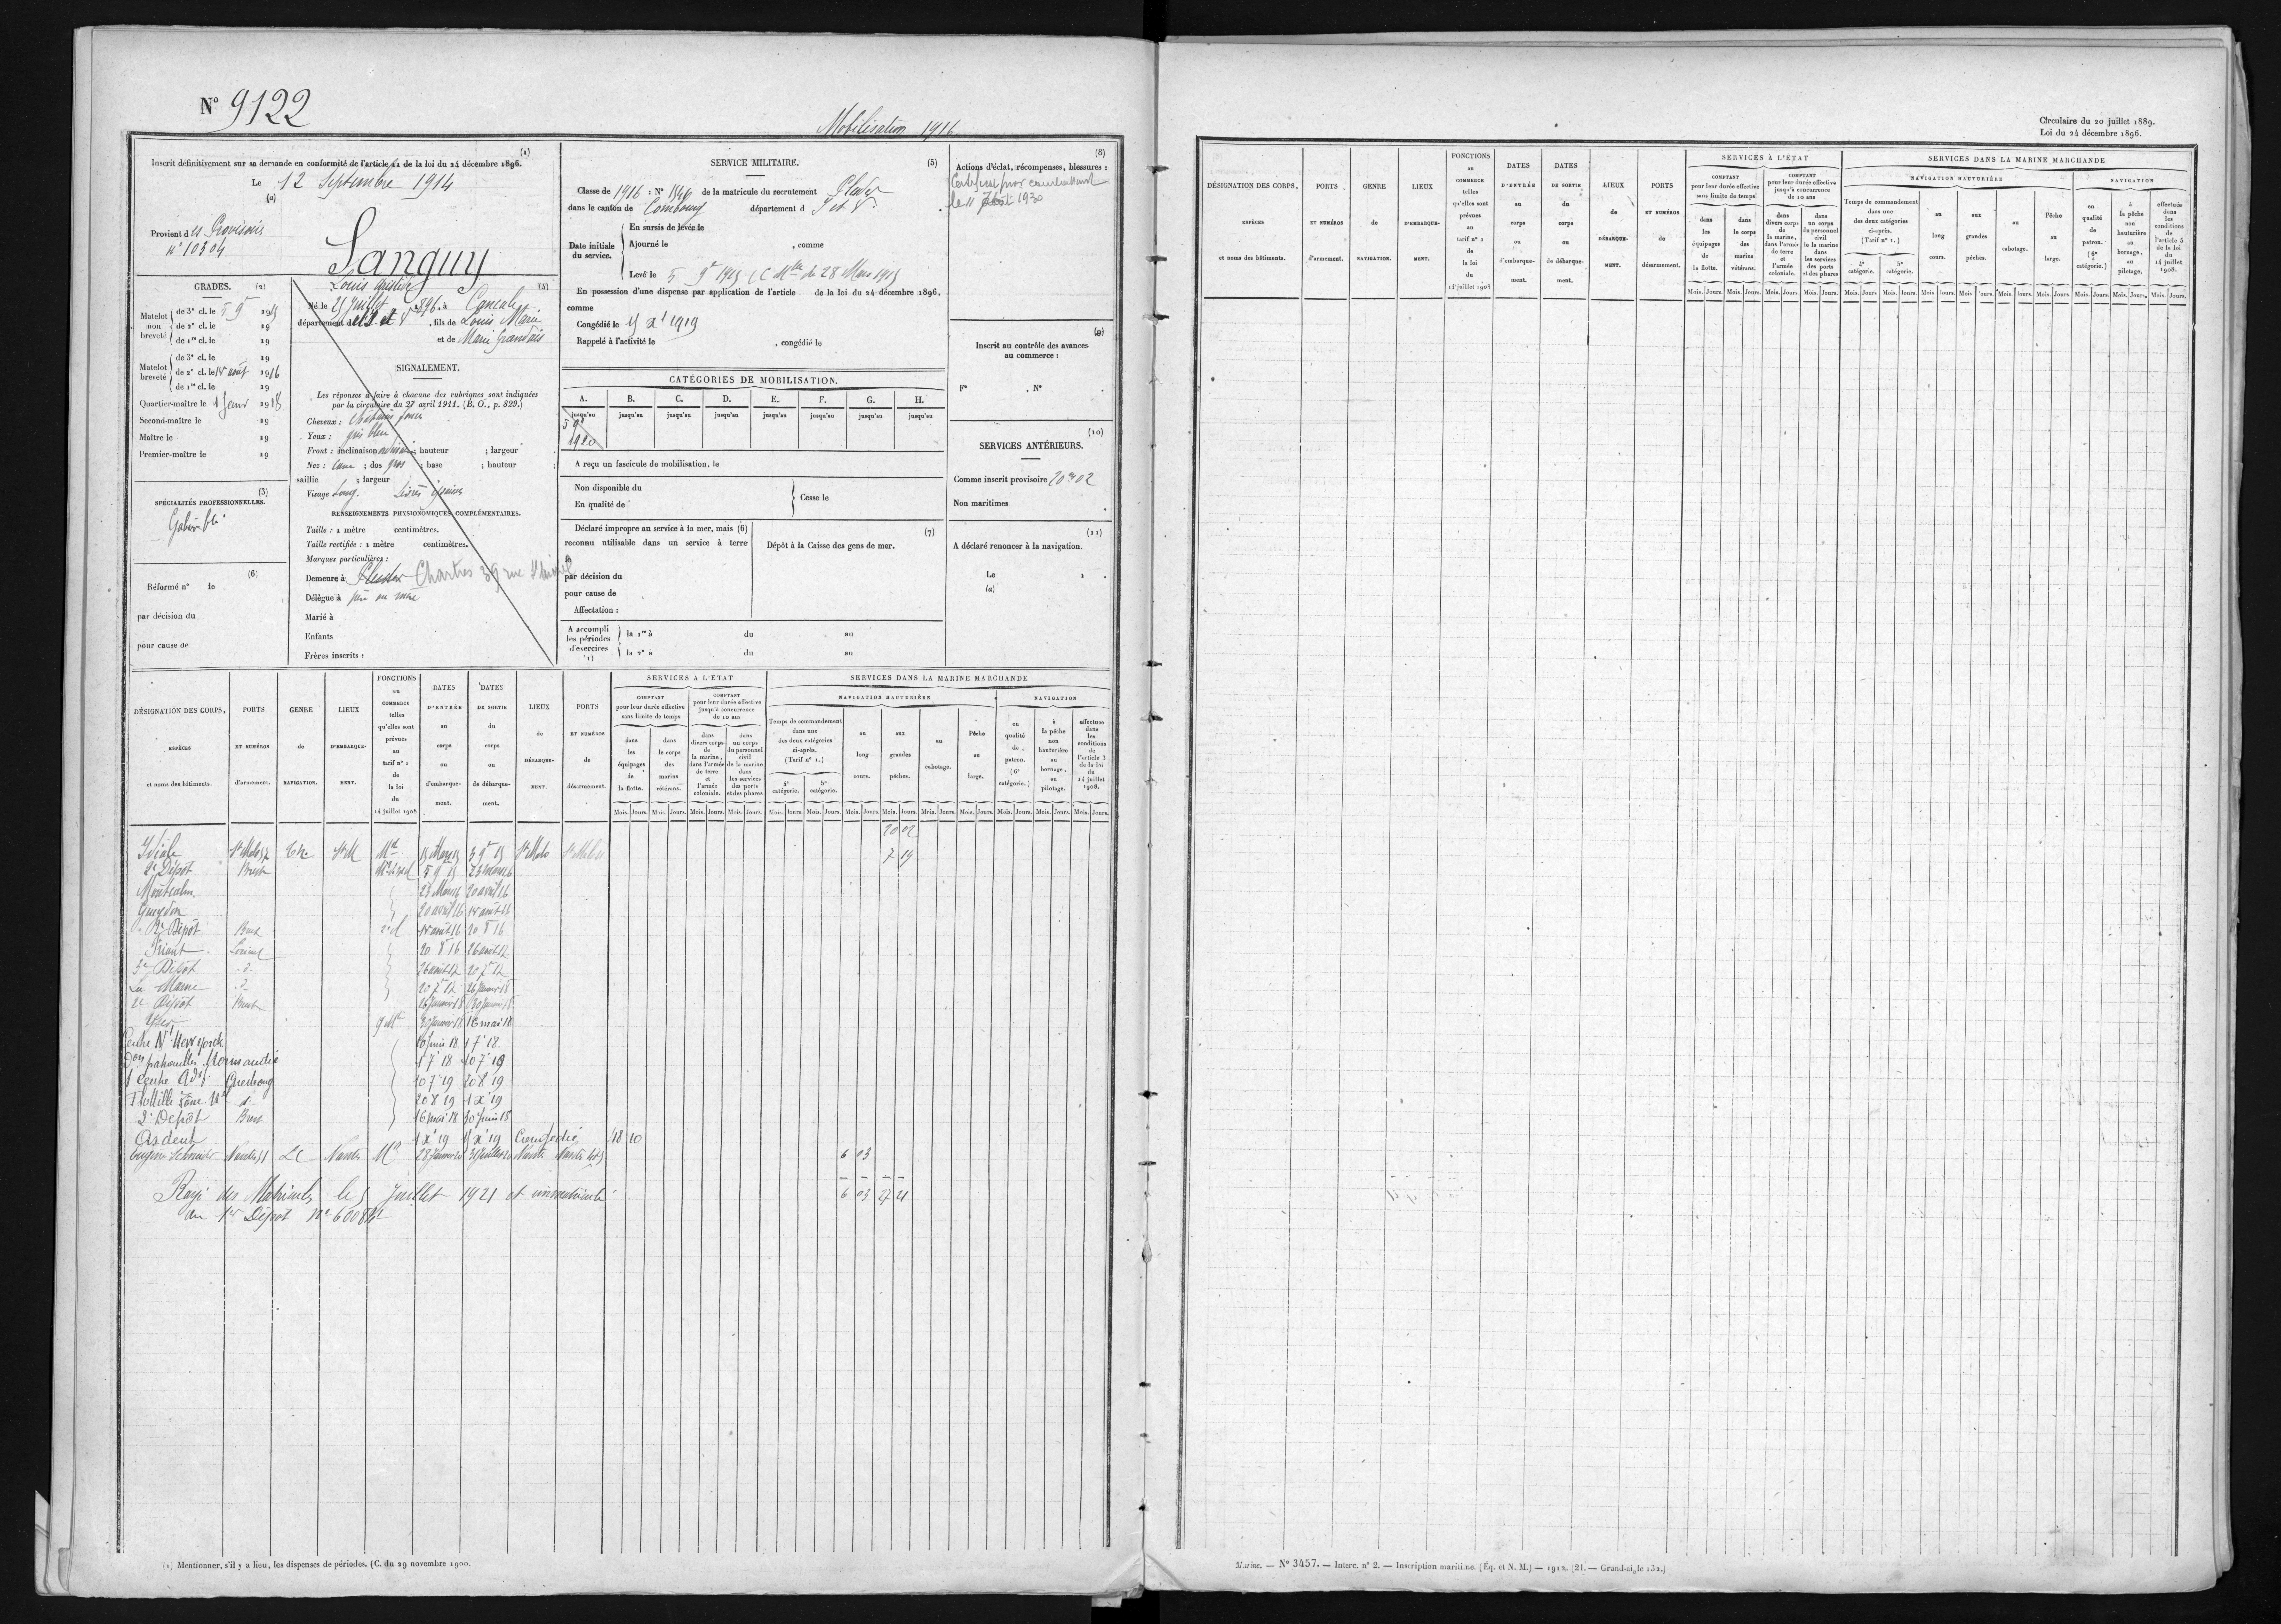 N° 9122
Mobilisation 1916
Inscrit définitivement sur sa demande en conformité de l'article 11 de la loi du 24 décembre 1896. (1)
Le 12 Septembre 1914
(a)
Provient des Provisoires
n° 10304
Languy
Louis
GRADES. (2)
Matelot non breveté
de 3e cl. le 5 9r 1915
de 2e cl. le 19
de 1re cl. le 19
Matelot breveté
de 3e cl. le 19
de 2e cl. le 15 août 1916
de 1re cl. le 19
Quartier-maître le 1 janv 1918
Second-maître le 19
Maître le 19
Premier-maître le 19
(3)
SPÉCIALITÉS PROFESSIONNELLES.
Gabier
(6)
Réformé n° le
par décision du
pour cause de
(4)
Né le 21 Juillet 1896 à Cancale
département d' Ile et V. fils de Louis Marie
et de Marie Grandais
SIGNALEMENT.
Les réponses à faire à chacune des rubriques sont indiquées
par la circulaire du 27 avril 1911. (B. O., p. 829.)
Cheveux : châtains
Yeux : gris bleu
Front : inclinaison ; hauteur ; largeur
Nez : cave ; dos gros ; base ; hauteur ;
saillie ; largeur
Visage Long. Lèvres épaisses
RENSEIGNEMENTS PHYSIONOMIQUES COMPLÉMENTAIRES.
Taille : 1 mètre centimètres.
Taille rectifiée : 1 mètre centimètres.
Marques particulières :
Demeure à Chartres 39 rue St Michel
Délègue à père ou mère
Marié à
Enfants
Frères inscrits :
SERVICE MILITAIRE. (5)
Classe de 1916 : N° 1546 de la matricule du recrutement
dans le canton de Combourg département d I et V.
Date initiale du service.
En sursis de levée le
Ajourné le , comme
Levé le 5 9r 1915 (C Mlle du 28 Mars 1915
En possession d'une dispense par application de l'article de la loi du 24 décembre 1896,
comme
Congédié le 15 Xr 1919
Rappelé à l'activité le , congédié le
CATÉGORIES DE MOBILISATION.
A. B. C. D. E. F. G. H.
jusqu'au jusqu'au jusqu'au jusqu'au jusqu'au jusqu'au jusqu'au jusqu'au
5 9r
1920
A reçu un fascicule de mobilisation, le
Non disponible du
En qualité de
Cesse le
Déclaré impropre au service à la mer, mais (6)
reconnu utilisable dans un service à terre
le
par décision du
pour cause de
Affectation :
(7)
Dépôt à la Caisse des gens de mer.
A accompli les périodes d'exercices (1)
la 1re à du au
la 2e à du au
(8)
Actions d'éclat, récompenses, blessures :
Certificat pour combattant
le 11 1930
(9)
Inscrit au contrôle des avances
au commerce :
F° , N° .
(10)
SERVICES ANTÉRIEURS.
Comme inscrit provisoire 20m 02
Non maritimes
(11)
A déclaré renoncer à la navigation.
Le 1 .
(a)
DÉSIGNATION DES CORPS,
ESPÈCES
et noms des bâtiments.
PORTS
ET NUMÉROS
d'armement.
GENRE
de
NAVIGATION.
LIEUX
D'EMBARQUE-
MENT.
FONCTIONS
au
COMMERCE
telles
qu'elles sont
prévues
au
tarif n° 1
de
la loi
du
14 juillet 1908
DATES
D'ENTRÉE
au
corps
ou
d'embarque-
ment.
DATES
DE SORTIE
du
corps
ou
de débarque-
ment.
LIEUX
de
DÉBARQUE-
MENT.
PORTS
ET NUMÉROS
de
désarmement.
SERVICES A L'ETAT
COMPTANT
pour leur durée effective
sans limite de temps
dans les équipages de la flotte.
dans le corps des marins vétérans.
COMPTANT
pour leur durée effective
jusqu'à concurrence
de 10 ans
dans divers corps de la marine, dans l'armée de terre et l'armée coloniale.
dans un corps du personnel civil de la marine dans les services des ports et des phares
SERVICES DANS LA MARINE MARCHANDE
NAVIGATION HAUTURIÈRE
Temps de commandement
dans une
des deux catégories
ci-après.
(Tarif n° 1.)
4e catégorie.
5e catégorie.
au long cours.
aux grandes pêches.
au cabotage.
Pêche au large.
NAVIGATION
en qualité de patron. (6e catégorie.)
à la pêche non hauturière au bornage, au pilotage.
effectuée dans les conditions de l'article 3 de la loi du 14 juillet 1908.
Mois. Jours. Mois. Jours. Mois. Jours. Mois. Jours. Mois. Jours. Mois. Jours. Mois. Jours. Mois. Jours. Mois. Jours. Mois. Jours. Mois. Jours. Mois. Jours. Mois. Jours.
20 02
Idéale St Malo 52 St M Mt 15 Mars 15 3 9r 15 St Malo St Malo 7 19
2e Dépôt Brest 5 9r 15 23 mars 16
Montcalm 23 Mars 16 20 avril 16
Gueydon 20 avril 16 15 août 16
2e Dépôt Brest 15 août 16 20 8 16
Friant Lorient 20 8 16 26 août 17
3e Dépôt d° 26 août 17 20 7r 17
La Marne d° 20 7r 17 26 Janvier 18
2e Dépôt Brest 26 Janvier 18 30 Janvier 18
Yser q Mtre 30 Janvier 18 16 mai 18
Centre N1 New-york 30 juin 18 1 7r 18
Don patrouilles Normandie 1 7r 18 10 7r 19
1 centre Adif Cherbourg 10 7r 19 20 8 19
Flottille d° 20 8 19 1 Xr 19
2e Dépôt Brest 16 mai 18 30 juin 18
Ardent 1 Xr 19 15 Xr 19 Congédié 48 10
Eugène Schneider Nantes 51 LC Nantes Mt 28 Janvier 20 31 Juillet 20 Nantes Nantes 6 03
6 03 27 21
Rayé des Matricules le 5 Juillet 1921 et immatriculé
au 1er Dépôt n° 60084
(1) Mentionner, s'il y a lieu, les dispenses de périodes. (C. du 29 novembre 1900.
Circulaire du 20 juillet 1889.
Loi du 24 décembre 1896.
DÉSIGNATION DES CORPS,
ESPÈCES
et noms des bâtiments.
PORTS
ET NUMÉROS
d'armement.
GENRE
de
NAVIGATION.
LIEUX
D'EMBARQUE-
MENT.
FONCTIONS
au
COMMERCE
telles
qu'elles sont
prévues
au
tarif n° 1
de
la loi
du
14 juillet 1908
DATES
D'ENTRÉE
au
corps
ou
d'embarque-
ment.
DATES
DE SORTIE
du
corps
ou
de débarque-
ment.
LIEUX
de
DÉBARQUE-
MENT.
PORTS
ET NUMÉROS
de
désarmement.
SERVICES À L'ETAT
COMPTANT
pour leur durée effective
sans limite de temps
dans les équipages de la flotte.
dans le corps des marins vétérans.
COMPTANT
pour leur durée effective
jusqu'à concurrence
de 10 ans
dans divers corps de la marine, dans l'armée de terre et l'armée coloniale.
dans un corps du personnel civil de la marine dans les services des ports et des phares
SERVICES DANS LA MARINE MARCHANDE
NAVIGATION HAUTURIÈRE
Temps de commandement
dans une
des deux catégories
ci-après.
(Tarif n° 1.)
4e catégorie.
5e catégorie.
au long cours.
aux grandes pêches.
au cabotage.
Pêche au large.
NAVIGATION
en qualité de patron. (6e catégorie.)
à la pêche non hauturière au bornage, au pilotage.
effectuée dans les conditions de l'article 5 de la loi du 14 juillet 1908.
Mois. Jours. Mois. Jours. Mois. Jours. Mois. Jours. Mois. Jours. Mois. Jours. Mois. Jours. Mois. Jours. Mois. Jours. Mois. Jours. Mois. Jours. Mois. Jours. Mois. Jours.
Marine. — N° 3457. — Interc. n° 2. — Inscription maritime. (Éq. et N. M.) — 1912. (21. — Grand-aigle 132.)